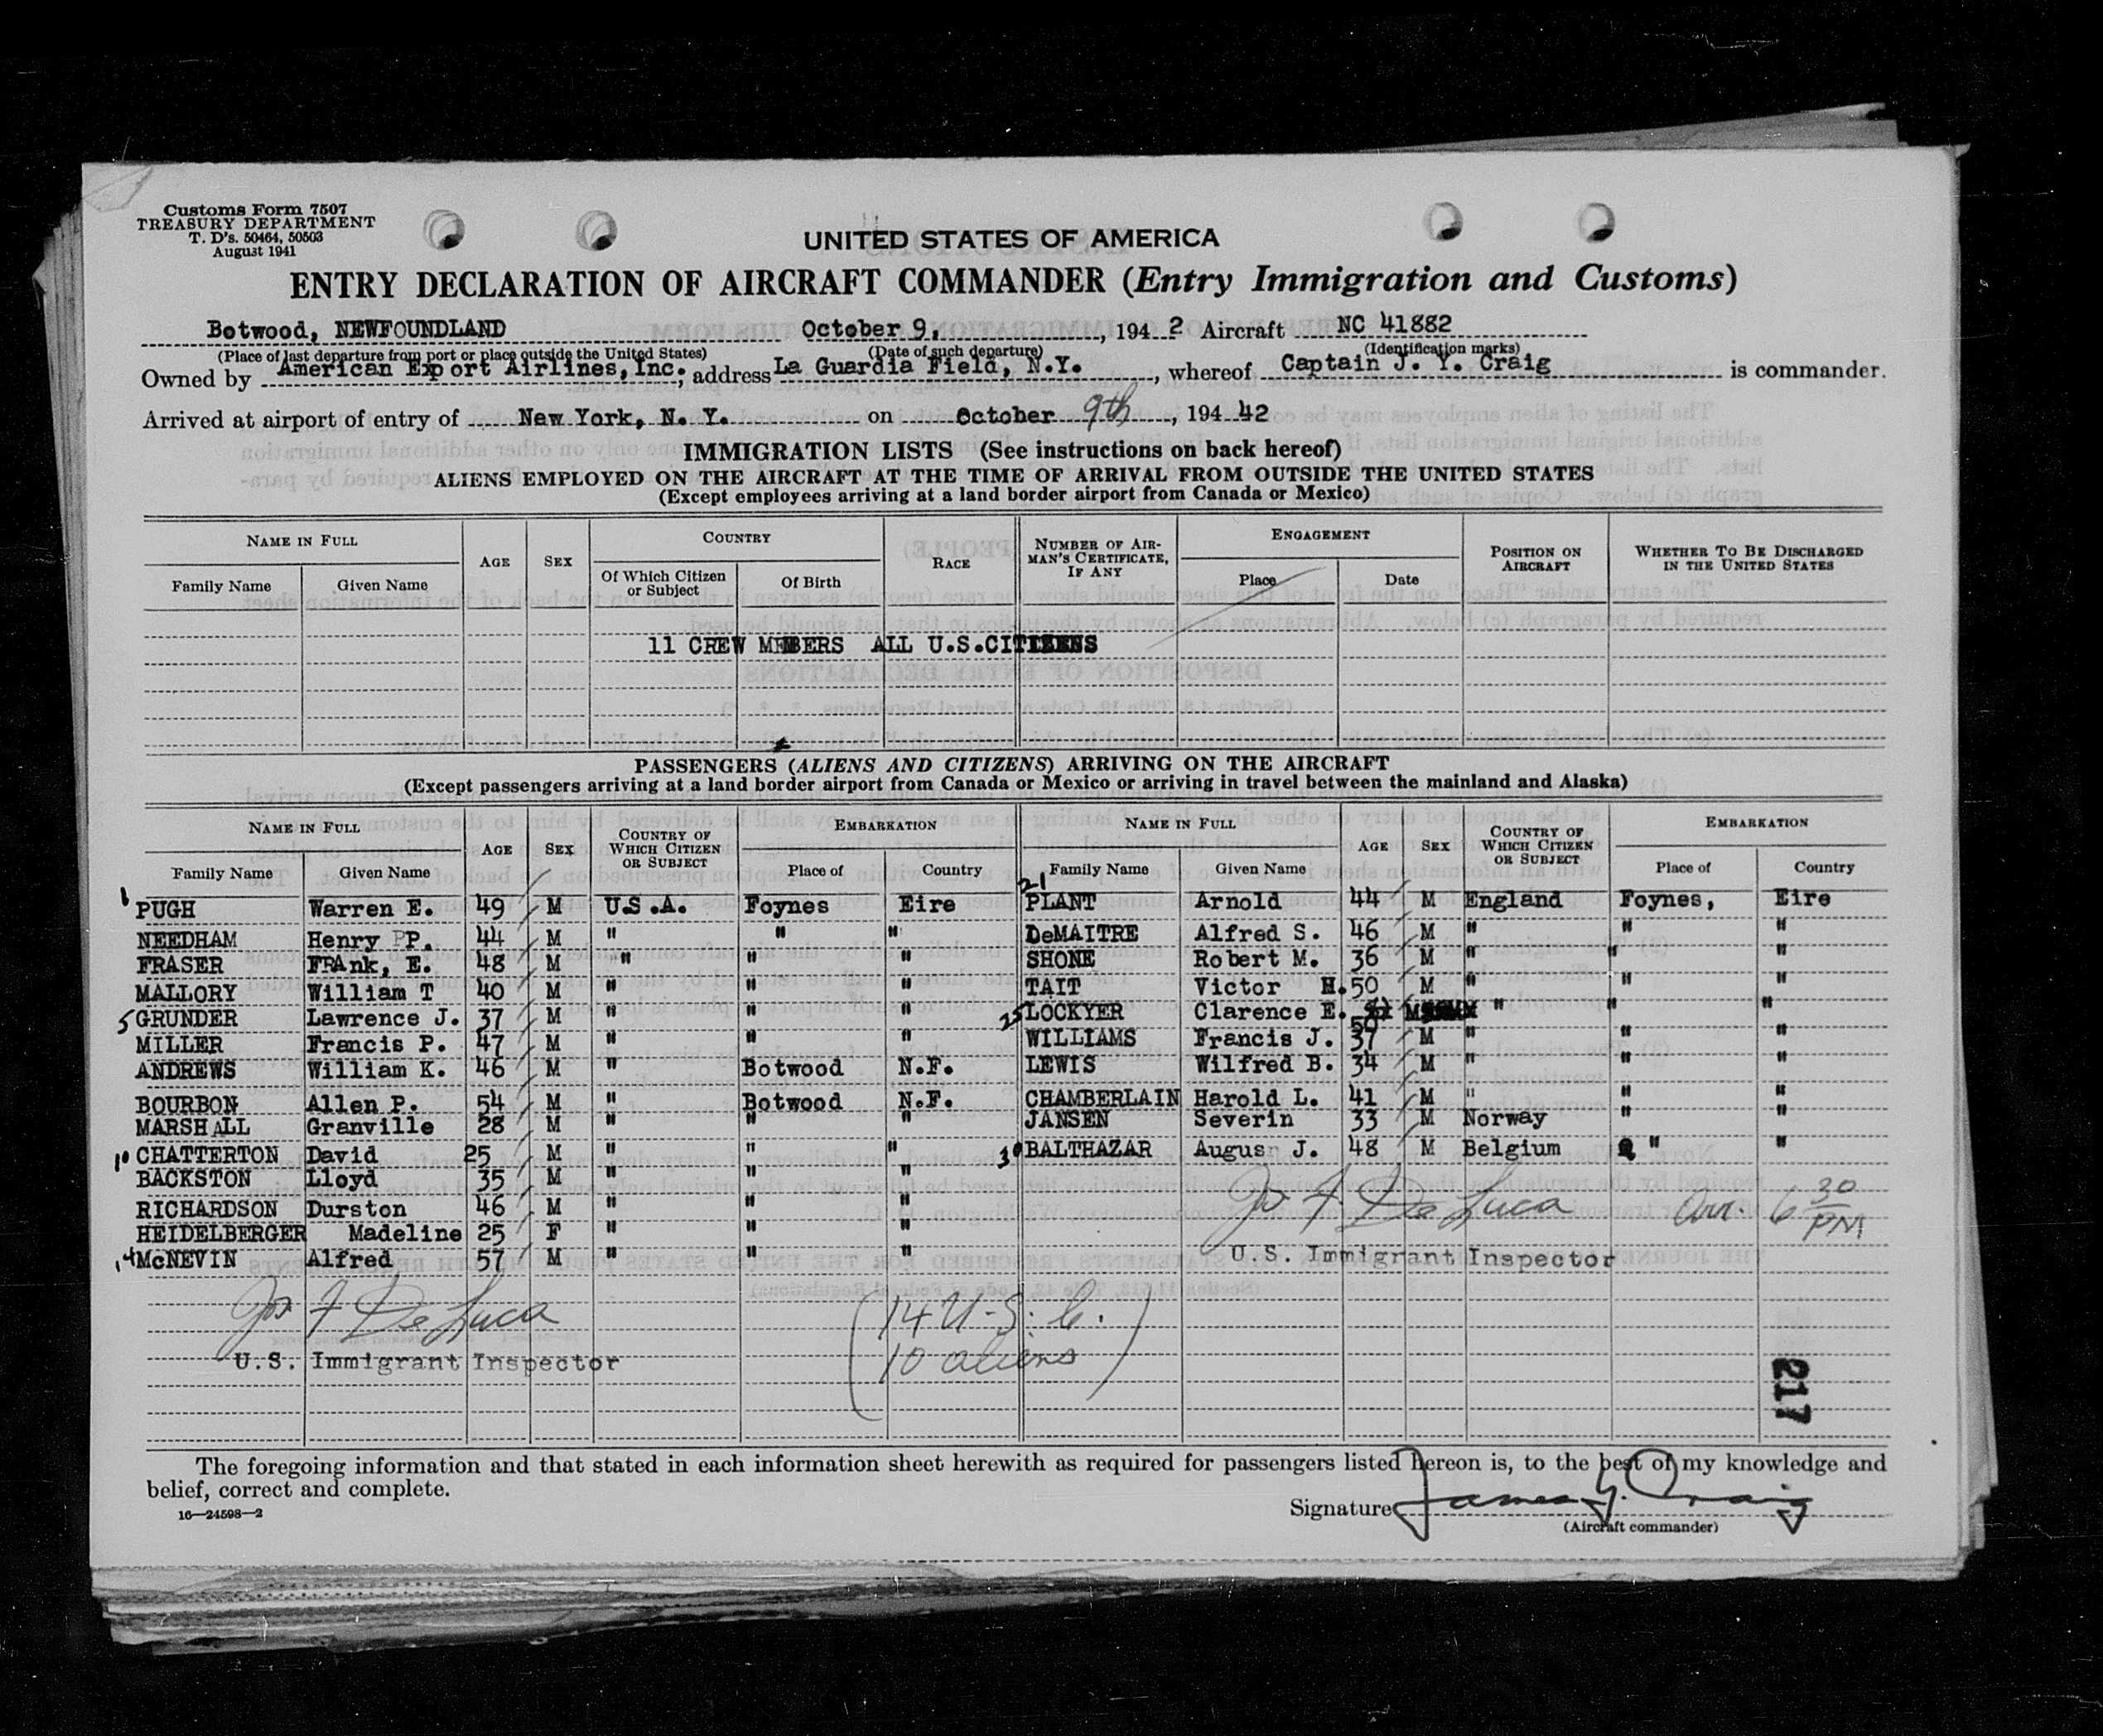 Customs Form 7507
TREASURY DEPARTMENT
T. D's. 50464, 50503
August 1941
UNITED STATES OF AMERICA
ENTRY DECLARATION OF AIRCRAFT COMMANDER (Entry Immigration and Customs)
Botwood, NEWFOUNDLAND October 9, , 194 2 Aircraft NC 41882
(Place of last departure from port or place outside the United States) (Date of such departure) (Identification marks)
Owned by American Export Airlines, Inc. , address La Guardia Field, N.Y. , whereof Captain J. Y. Craig is commander.
Arrived at airport of entry of New York, N. Y. on October 9th , 194 42
IMMIGRATION LISTS (See instructions on back hereof)
ALIENS EMPLOYED ON THE AIRCRAFT AT THE TIME OF ARRIVAL FROM OUTSIDE THE UNITED STATES
(Except employees arriving at a land border airport from Canada or Mexico)
NAME IN FULL AGE SEX COUNTRY RACE NUMBER OF AIRMAN'S CERTIFICATE, IF ANY ENGAGEMENT POSITION ON AIRCRAFT WHETHER TO BE DISCHARGED IN THE UNITED STATES
Family Name Given Name Of Which Citizen or Subject Of Birth Place Date
11 CREW MEMBERS ALL U.S.CITIZENS
PASSENGERS (ALIENS AND CITIZENS) ARRIVING ON THE AIRCRAFT
(Except passengers arriving at a land border airport from Canada or Mexico or arriving in travel between the mainland and Alaska)
NAME IN FULL AGE SEX COUNTRY OF WHICH CITIZEN OR SUBJECT EMBARKATION NAME IN FULL AGE SEX COUNTRY OF WHICH CITIZEN OR SUBJECT EMBARKATION
Family Name Given Name Place of Country Family Name Given Name Place of Country
1 PUGH Warren E. 49 M U.S.A. Foynes Eire 21 PLANT Arnold 44 M England Foynes, Eire
NEEDHAM Henry P. 44 M " " " DeMAITRE Alfred S. 46 M " " "
FRASER FRAnk, E. 48 M " " " SHONE Robert M. 36 M " " "
MALLORY William T 40 M " " " TAIT Victor H. 50 M " " "
5 GRUNDER Lawrence J. 37 M " " " 25 LOCKYER Clarence E. 50 M " " "
MILLER Francis P. 47 M " " " WILLIAMS Francis J. 37 M " " "
ANDREWS William K. 46 M " Botwood N.F. LEWIS Wilfred B. 34 M " " "
BOURBON Allen P. 54 M " Botwood N.F. CHAMBERLAIN Harold L. 41 M " " "
MARSHALL Granville 28 M " " " JANSEN Severin 33 M Norway " "
10 CHATTERTON David 25 M " " " 30 BALTHAZAR Augus J. 48 M Belgium " "
BACKSTON Lloyd 35 M " " "
RICHARDSON Durston 46 M " " " Jos F De Luca Arr. 6 30 PM
HEIDELBERGER Madeline 25 F " " "
14 McNEVIN Alfred 57 M " " " U.S. Immigrant Inspector
Jos F De Luca (14 U.S.C.
U.S. Immigrant Inspector 10 aliens)
217
The foregoing information and that stated in each information sheet herewith as required for passengers listed hereon is, to the best of my knowledge and
belief, correct and complete.
16—24598—2
Signature James Y. Craig
(Aircraft commander)